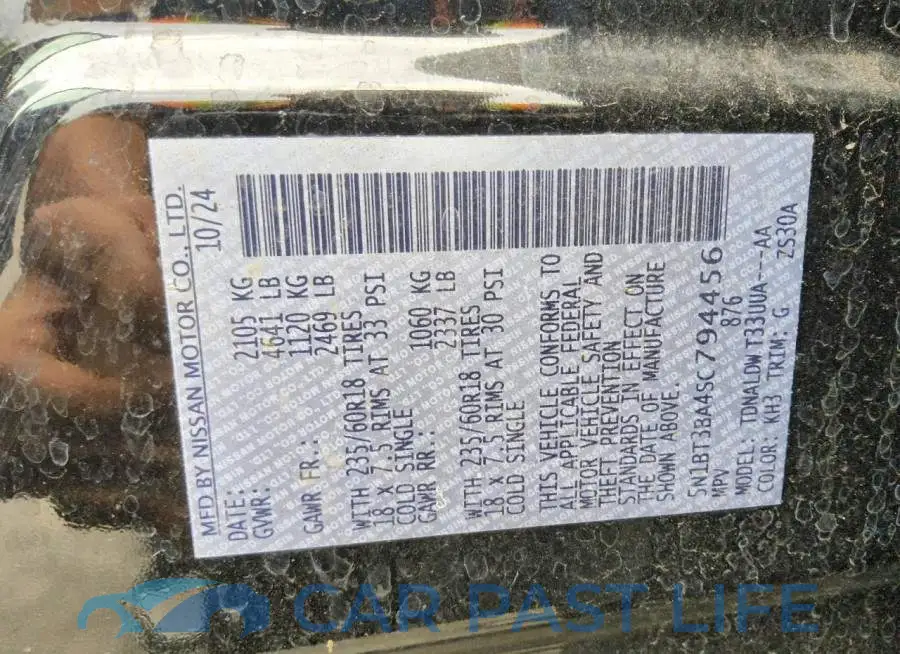 MFD BY NISSAN MOTOR CO., LTD.
DATE: 10/24
GVWR: 2105 KG
4641 LB
GAWR FR.: 1120 KG
2469 LB
WITH 235/60R18 TIRES
18 x 7.5 RIMS AT 33 PSI
COLD SINGLE
GAWR RR.: 1060 KG
2337 LB
WITH 235/60R18 TIRES
18 x 7.5 RIMS AT 30 PSI
COLD SINGLE
THIS VEHICLE CONFORMS TO
ALL APPLICABLE FEDERAL
MOTOR VEHICLE SAFETY AND
THEFT PREVENTION
STANDARDS IN EFFECT ON
THE DATE OF MANUFACTURE
SHOWN ABOVE.
5N1BT3BA4SC794456
MPV 876
MODEL: TDNALDW T33UUA---AA
COLOR: KH3 TRIM: G ZS30A
CAR PAST LIFE